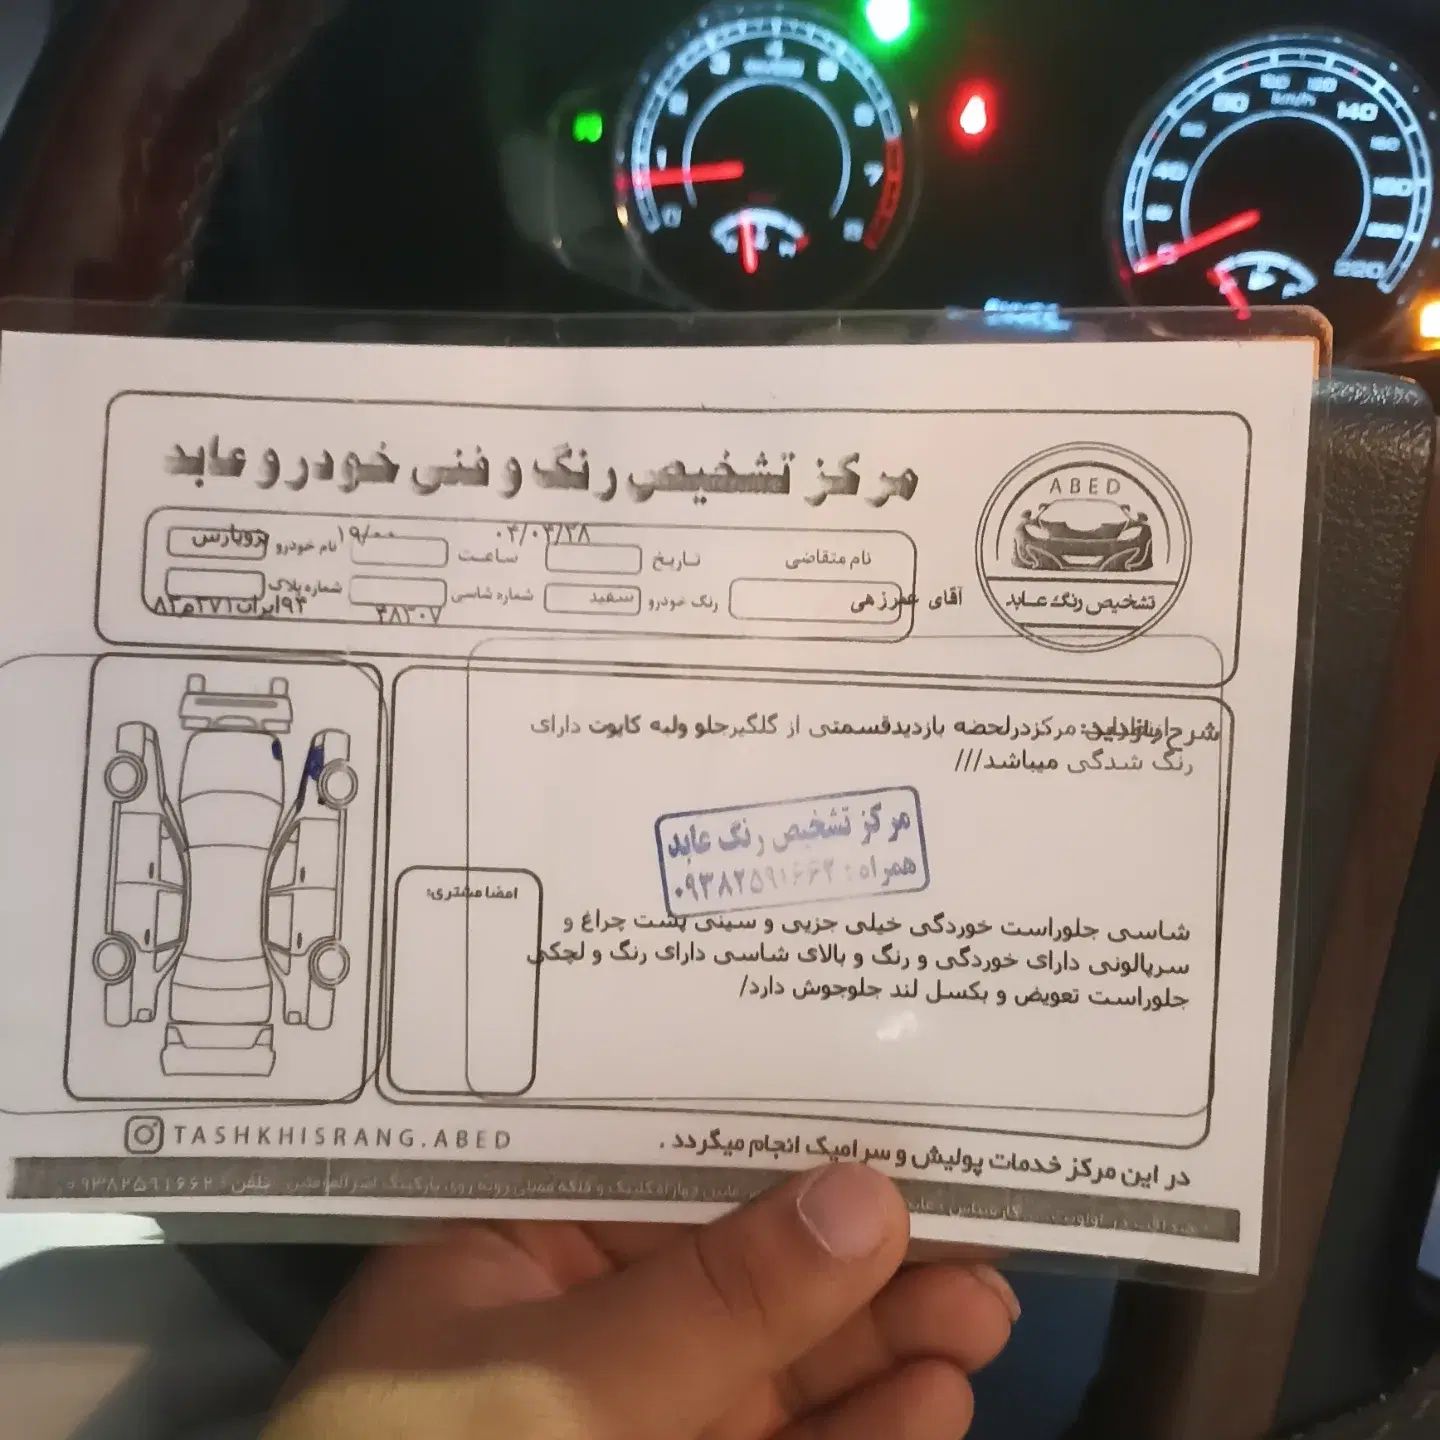 مرکز تشخیص رنگ و فنی خودرو عابد
ABED
تشخیص رنگ عابد
نام متقاضی
آقای عمرزهی
تاریخ
ساعت
۱۹/۰۰
نام خودرو
پژوپارس
رنگ خودرو
سفید
شماره شاسی
۳۸۳۰۷
شماره پلاک
شرح
مرکزدرلحضه بازدیدقسمتی از گلگیرجلو ولبه کاپوت دارای
رنگ شدگی میباشد///
مرکز تشخیص رنگ عابد
همراه: ۰۹۳۸۲۵۹۱۶۶۲
امضا مشتری:
شاسی جلوراست خوردگی خیلی جزیی و سینی پشت چراغ و
سرپالونی دارای خوردگی و رنگ و بالای شاسی دارای رنگ و لچکی
جلوراست تعویض و بکسل لند جلوجوش دارد/
TASHKHISRANG.ABED
در این مرکز خدمات پولیش و سرامیک انجام میگردد .
تلفن: ۰۹۳۸۲۵۹۱۶۶۲